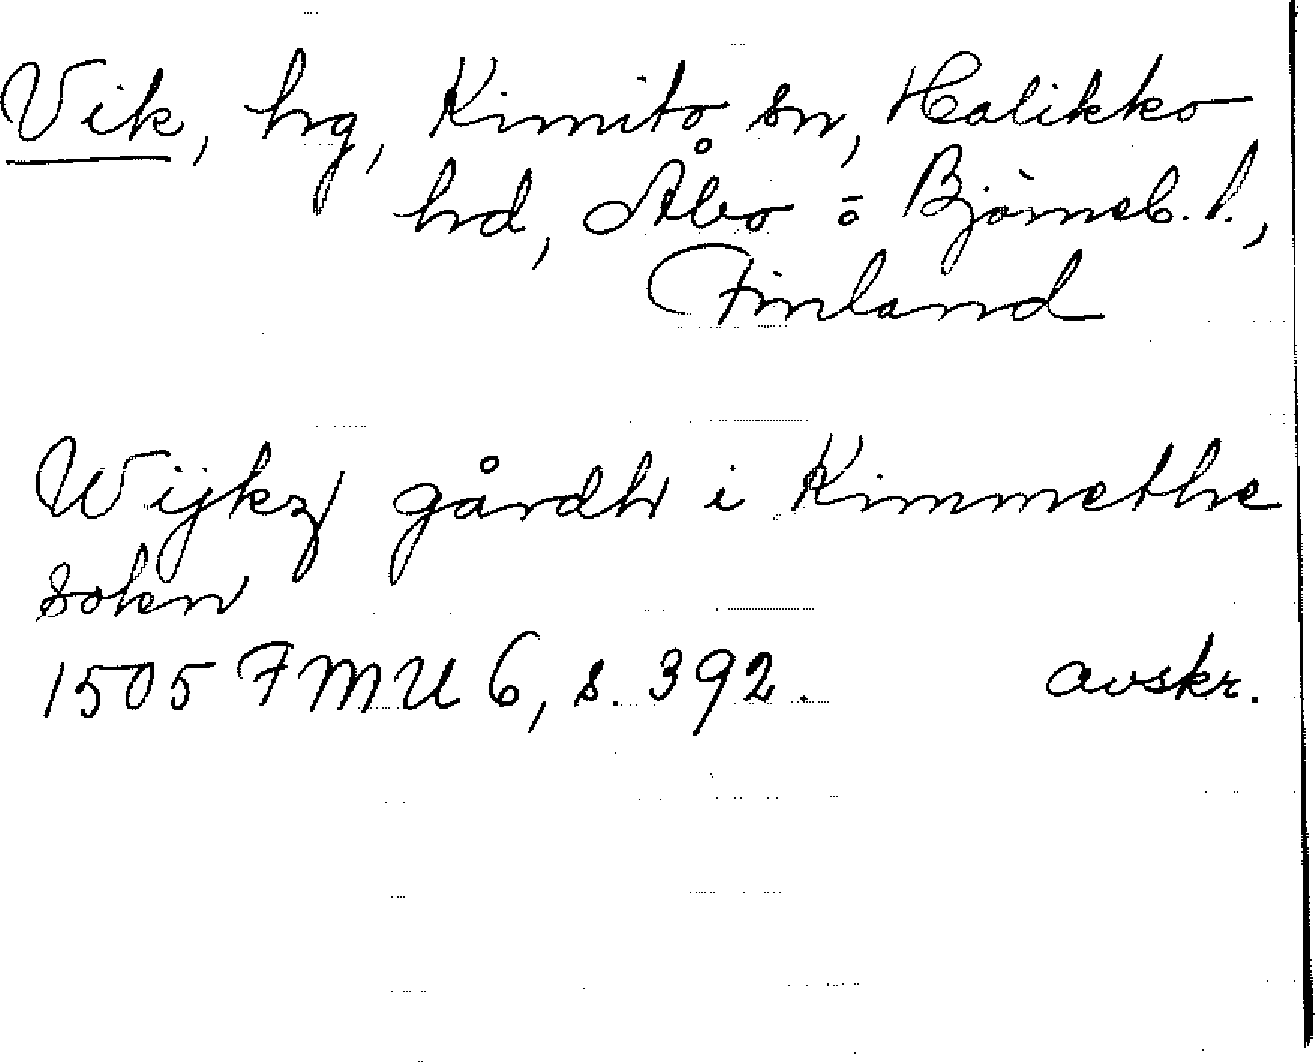 Vik, hg, Kimito sn, Halikko
hd, Åbo ö Björneb. l.,
Finland
Wijkz gårdh i Kimmethe
sokn
1505 FMU 6, s. 392. avskr.